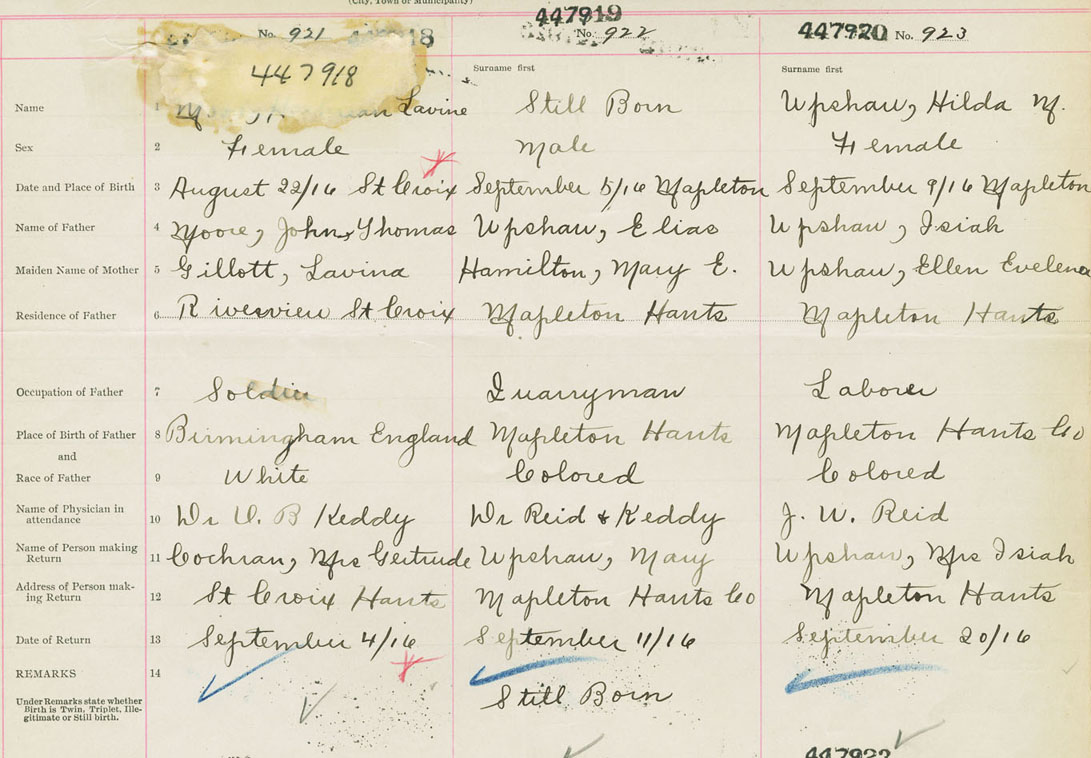 (City, Town or Municipality)
447919
No. 921 18 No. 922 447920 No. 923
447918
Surname first Surname first
Name 1 Lavine Still Born Upshaw, Hilda M.
Sex 2 Female Male Female
Date and Place of Birth 3 August 22/16 St Croix September 5/16 Mapleton September 9/16 Mapleton
Name of Father 4 Moore, John Thomas Upshaw, Elias Upshaw, Isiah
Maiden Name of Mother 5 Gillott, Lavina Hamilton, Mary E. Upshaw, Ellen Evelena
Residence of Father 6 Riverview St Croix Mapleton Hants Mapleton Hants
Occupation of Father 7 Soldier Quarryman Laborer
Place of Birth of Father 8 Birmingham England Mapleton Hants Mapleton Hants Co
and
Race of Father 9 White Colored Colored
Name of Physician in
attendance 10 Dr O. B Keddy Dr Reid & Keddy J. W. Reid
Name of Person making
Return 11 Cochran, Mrs Gertrude Upshaw, Mary Upshaw, Mrs Isiah
Address of Person mak-
ing Return 12 St Croix Hants Mapleton Hants Co Mapleton Hants
Date of Return 13 September 4/16 September 11/16 September 20/16
REMARKS 14
Under Remarks state whether
Birth is Twin, Triplet, Ille-
gitimate or Still birth.
Still Born
447922